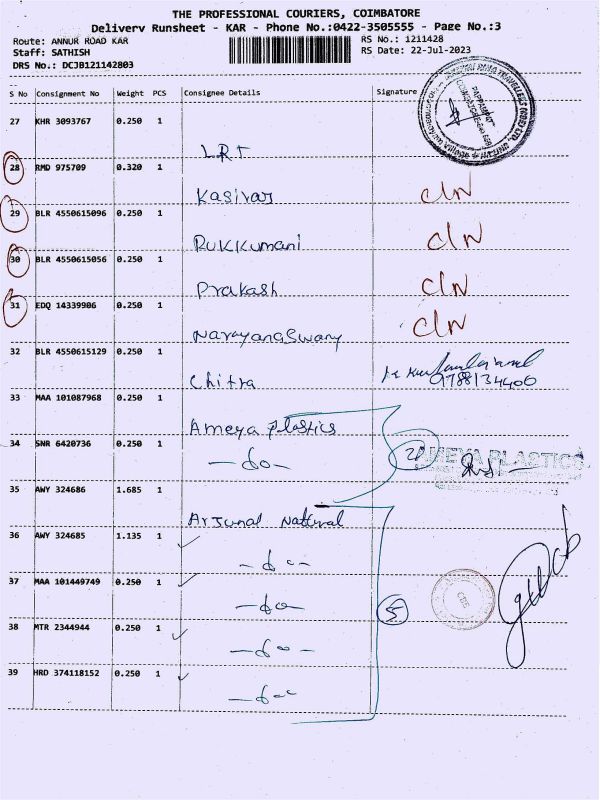 THE PROFESSIONAL COURIERS, COIMBATORE
Delivery Runsheet - KAR - Phone No.:0422-3505555 - Page No.:3
Route: ANNUR ROAD KAR
RS No.: 1211428
Staff: SATHISH
RS Date: 22-Jul-2023
DRS No.: DCJB121142803
S No Consignment No Weight PCS Consignee Details Signature
27 KHR 3093767 0.250 1
LRT
28 RMD 975709 0.320 1
Kasiraj C/N
29 BLR 4550615096 0.250 1
Rukkumani C/N
30 BLR 4550615056 0.250 1
Prakash C/N
31 EDQ 14339906 0.250 1
Narayanaswamy C/N
32 BLR 4550615129 0.250 1
Chitra 9788134406
33 MAA 101087968 0.250 1
Ameya Plastics
34 SNR 6420736 0.250 1
-do- 2 AMEYA PLASTICS
35 AWY 324686 1.685 1
Arjunal Natural
36 AWY 324685 1.135 1
-do-
37 MAA 101449749 0.250 1
-do- 5
38 MTR 2344944 0.250 1
-do-
39 HRD 374118152 0.250 1
-do-